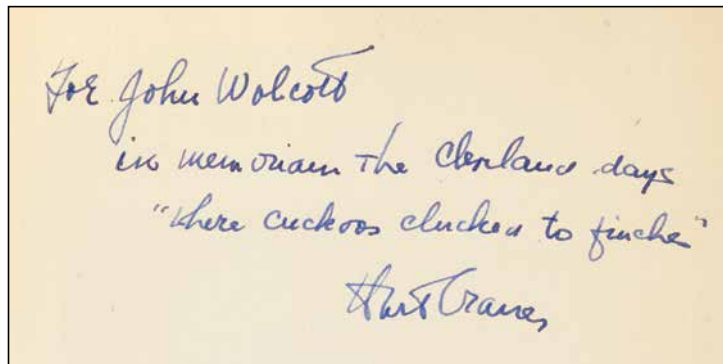 For John Wolcott
in memoriam The Cleveland days
"where cuckoos clucked to finches"
Hart Crane